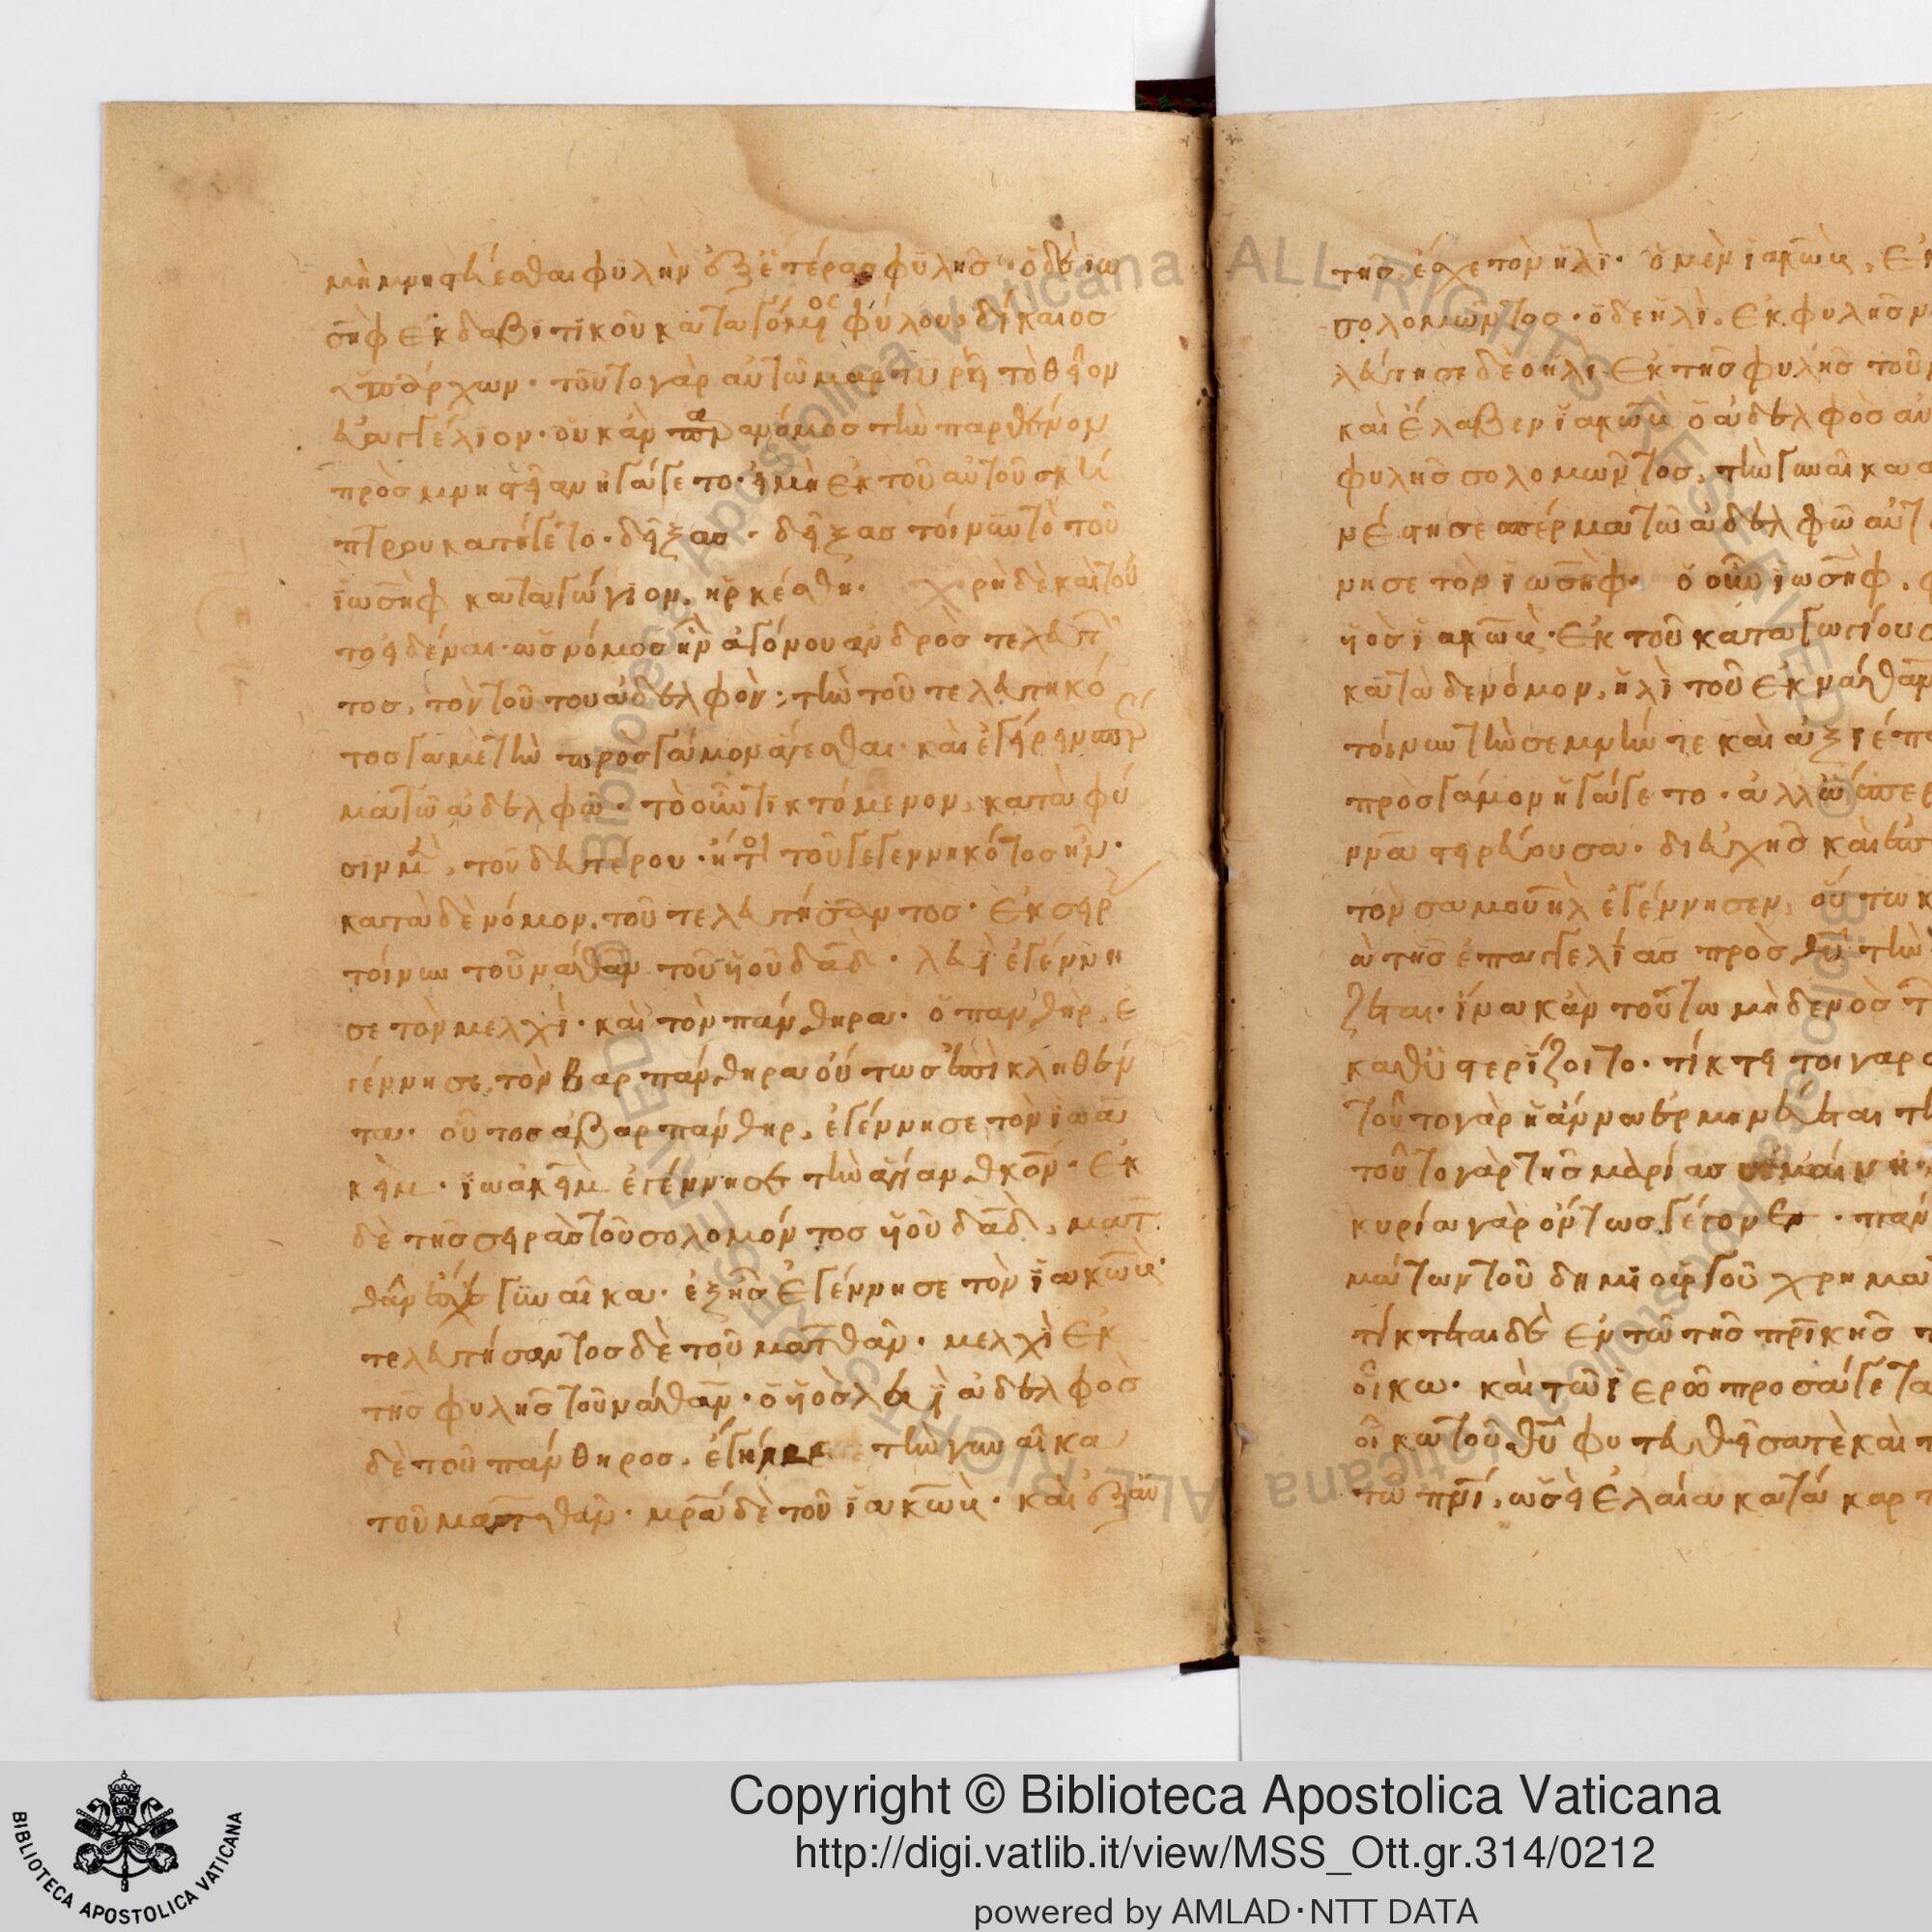 μὴ μνηστεύεσθαι φϋλὴν ἐξ ἑτέρας φϋλῆς · ὅδὲ ἰω
σὴφ ἐκ δαβιτικοῦ κατα φύλου, δίκαιος
ὑπάρχων · τοῦτο γὰρ αὐτῶ μαρτυρεῖ τὸ θεῖον
εὐαγγέλιον · οὐκ ἂν παρανόμως τὴν παρθένον
πρὸς μνηστείαν ἠγάγετο · εἰ μὴ ἐκ τοῦ αὐτοῦ σκή
πτρου κατήγετο · δείξας · δείξας τοίνυν τὸ τοῦ
ἰωσὴφ καταγώγιον, ἠρκέσθη · χρὴ δὲ καὶ τοῦ
το εἰδέναι · ὡς νόμος ἦν ἀγόνου ἀνδρὸς τελευτ
τος, τὸν τούτου ἀδελφὸν · τὴν τοῦ τετελευτηκό
τος γαμετὴν πρὸς γάμον ἄγεσθαι · καὶ ἐγείρειν σπέρ
μα τῶ ἀδελφῶ · τὸ οὖν τικτόμενον, κατὰ φύ
σιν μὲν, τοῦ δευτέρου · ἤτοι τοῦ γεγεννηκότος ἦν ·
κατὰ δὲ νόμον, τοῦ τελευτήσαντος · ἐκ σειρ
τοίνυν τοῦ νάθαν τοῦ ϋἱοῦ δαδ · λευὶ ἐγέννη
σε τὸν μελχὶ · καὶ τὸν πάνθηρα · ὁ πανθὴρ, ἐ
γέννησε τὸν βαρ πάνθηρα οὕτως ἐπικληθέν
τα · οὗτος ὁ βαρ πάνθηρ, ἐγέννησε τὸν ἰωα
κεὶμ · ἰωακεὶμ ἐγέννησε τὴν ἁγίαν θκον · ἐκ
δὲ τῆς σειρᾶς τοῦ σολομόντος ϋἱοῦ δαδ, ματ
θὰν ἔσχε γυναῖκα · ἐξ ἧς ἐγέννησε τὸν ἰακὼβ ·
τελευτήσαντος δὲ τοῦ ματθὰν · μελχὶ ἐκ
τῆς φυλῆς τοῦ νάθαν · ὁ ϋἱὸς λευὶ ἀδελφὸς
δὲ τοῦ πάνθηρος, ἔγημε τὴν γυναῖκα
τοῦ ματθὰν · μρα δὲ τοῦ ἰακὼβ · καὶ ἐξ αὐ
τῆς ἔσχε τὸν ἠλὶ · ὁ μὲν ἰακὼβ,
σολομῶντος · ὁ δὲ ἠλὶ, ἐκ φυλῆς
δὲ ὁ ἠλὶ ἐκ τῆς φυλῆς τοῦ
καὶ ἔλαβεν ἰακὼβ ὁ ἀδελφὸς αὐ
φυλῆς σολομῶντος, τὴν γυναῖκα
νέστησε σπέρμα τῶ ἀδελφῶ αὐτ
νησε τὸν ἰωσὴφ · ὁ οὖν ἰωσὴφ,
ϋἱὸς ἰακὼβ · ἐκ τοῦ καταγωγίου
κατὰ δὲ νόμον, ἠλὶ τοῦ ἐκ νάθαν
τοίνυν τὴν σεμνήν τε καὶ ἀξιέπ
πρὸς γάμον ἠγάγετο · ἀλλ ὥσπερ
ννα στειρεύουσα · δι εὐχῆς καὶ
τὸν σαμουὴλ ἐγέννησεν, οὕτω
τῆς ἐπαγγελίας πρὸς θυ τὴν
ζεται · ἵνα κἂν τούτω μηδενὸς
καθυστερίζοιτο · τίκτει τοιγαρ
τοῦτο γὰρ ἡ ἄννα ἑρμηνεύεται
τοῦτο γὰρ τῆς μαρίας
κυρία γὰρ ὄντως γέγονεν · παν
μάτων τοῦ δημιουργοῦ χρημα
τίκτεται δὲ ἐν τῶ τῆς πρικῆς
οἴκω · καὶ τῶ ἱερῶ προσάγετα
οἴκω τοῦ θυ φυτευθεῖσα τὲ καὶ
τῶ πνι, ὡσεὶ ἐλαία κατάκαρ
Copyright © Biblioteca Apostolica Vaticana
http://digi.vatlib.it/view/MSS_Ott.gr.314/0212
powered by AMLAD·NTT DATA
BIBLIOTECA APOSTOLICA VATICANA